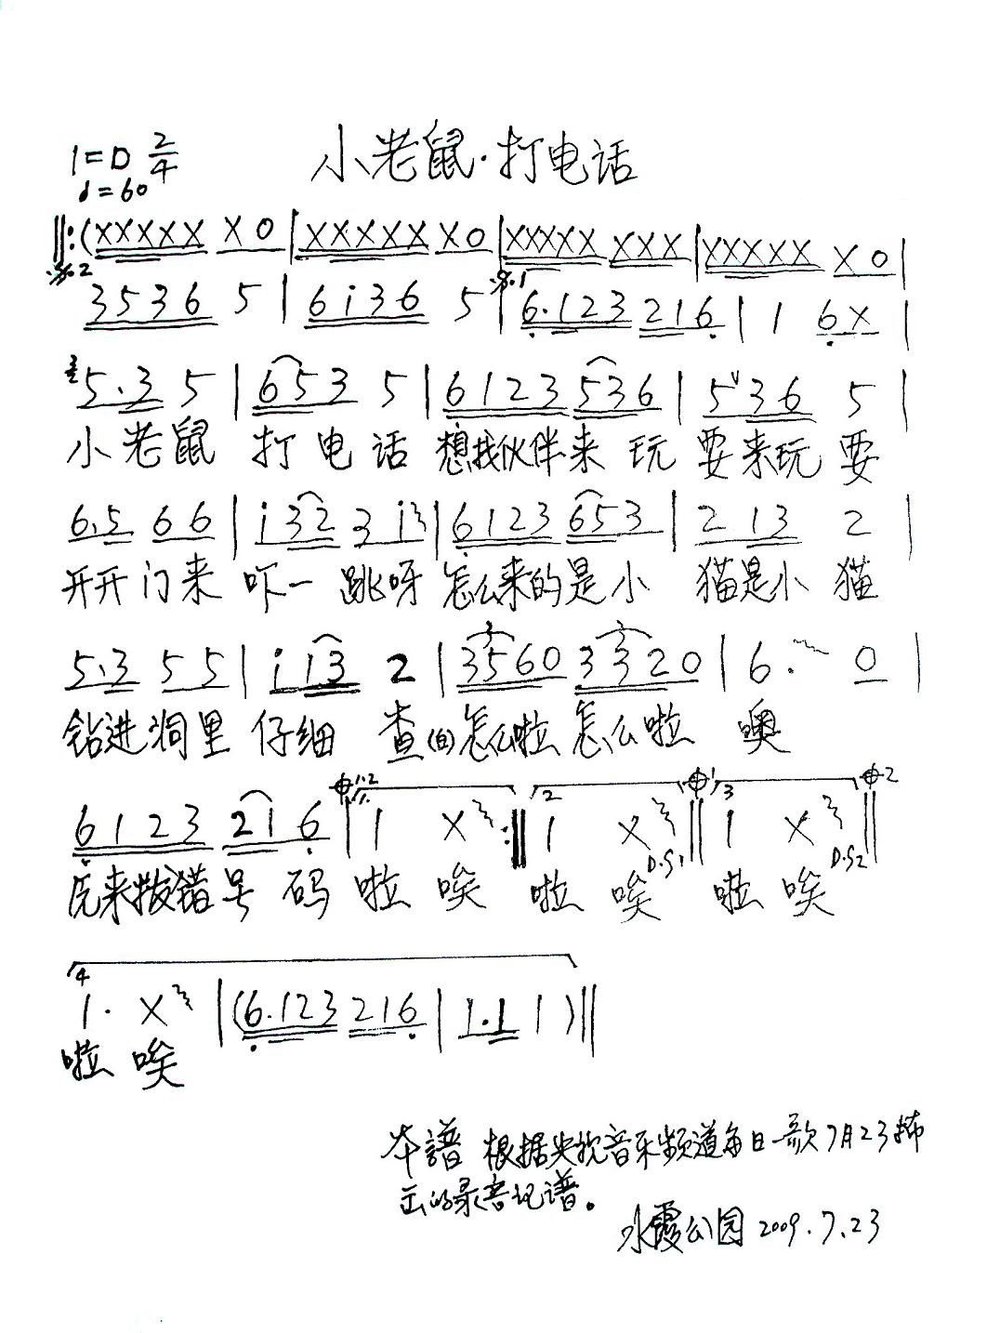 1=D 2/4 小老鼠·打电话
♩=60
‖:(XXXXX X0|XXXXX X0|XXXXX XXX|XXXXX X0|
3536 5|6i36 5|6.123 216|1 6X|
5.3 5|653 5|6123 536|5 36 5|
小老鼠 打电话 想找伙伴来玩耍来玩耍
6.5 66|i32 3i|6123 653|2 13 2|
开开门来 吓一跳呀 怎么来的是小 猫是小猫
5.3 55|i13 2|3560 3320|6. 0|
钻进洞里 仔细 查(由)怎么啦 怎么啦 噢
6123 216|1 X:‖1 X‖1 X‖
2 D.S1 3 D.S2
原来拨错号码啦 唉 啦 唉 啦 唉
4
1. X|(6.123 216|1.1 1)‖
啦 唉
本譜 根据央视音乐频道每日一歌7月23播
出的录音记谱。
水霞公园 2009.7.23